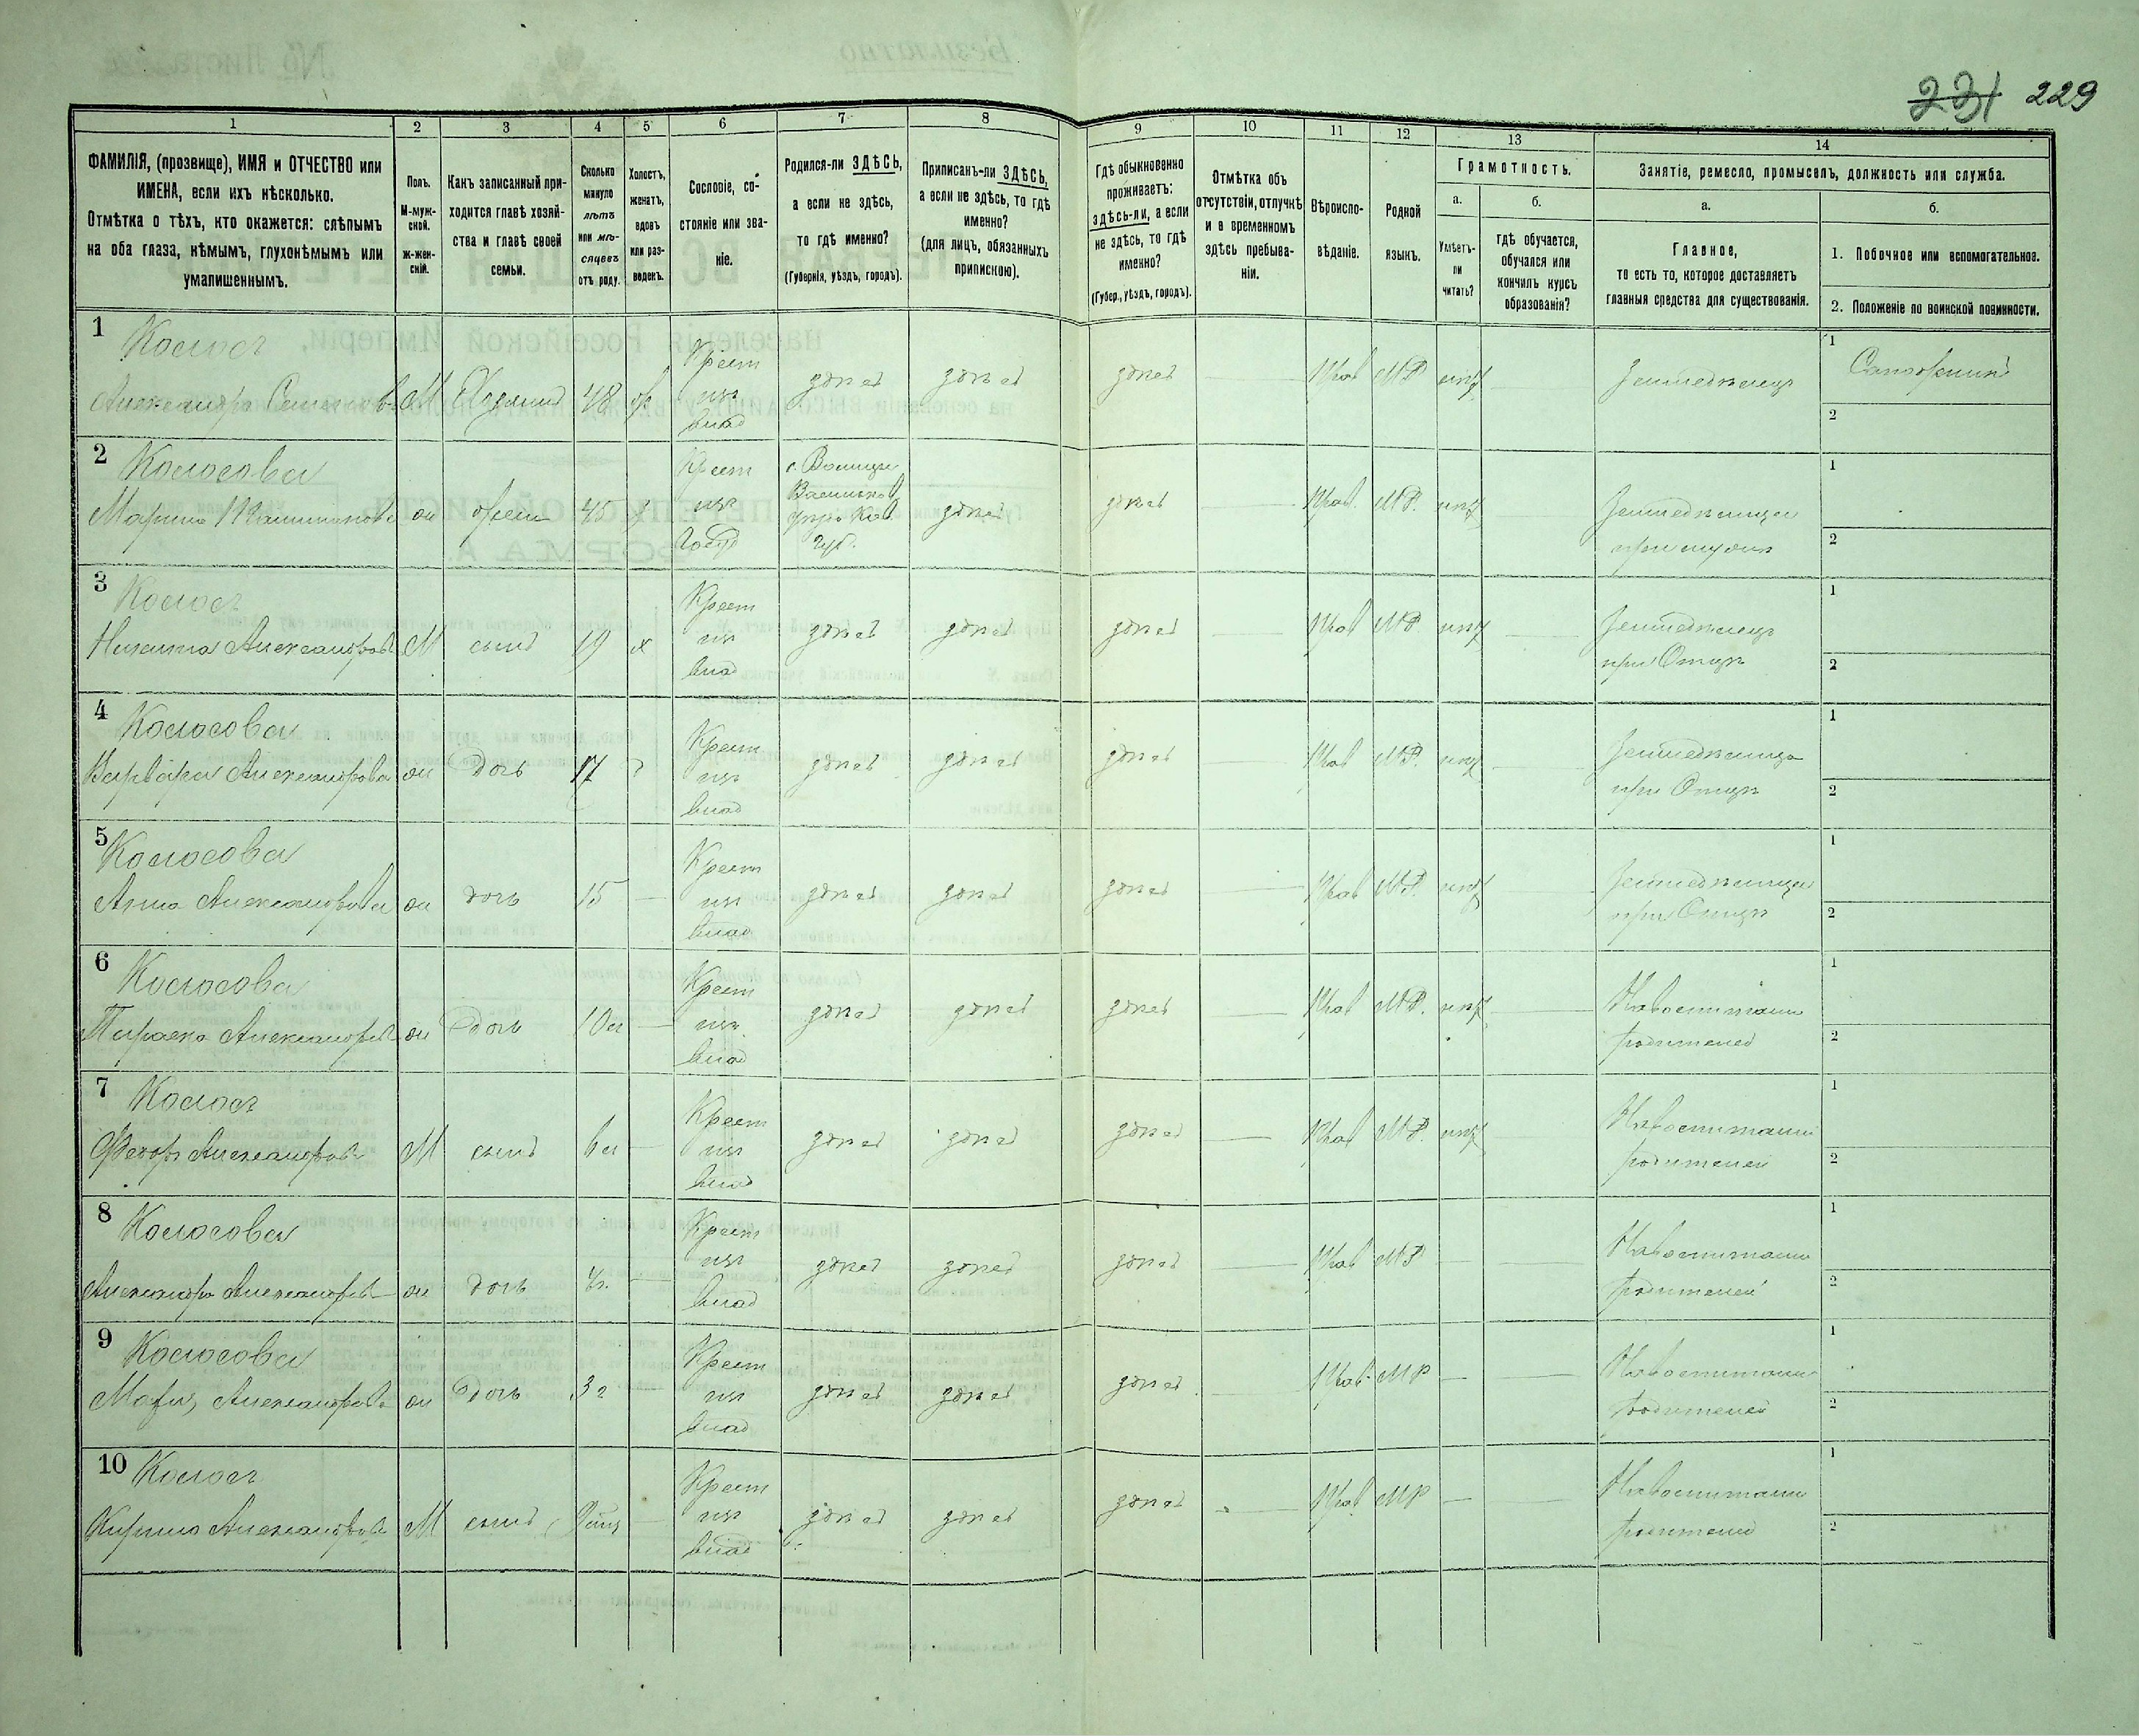 231 229
1 2 3 4 5 6 7 8 9 10 11 12 13 14
ФАМИЛІЯ, (прозвище), ИМЯ и ОТЧЕСТВО или
ИМЕНА, если ихъ нѣсколько.
Отмѣтка о тѣхъ, кто окажется: слѣпымъ
на оба глаза, нѣмымъ, глухонѣмымъ или
умалишеннымъ.
Полъ.
М-муж-
ской.
ж-жен-
скій.
Какъ записанный при-
ходится главѣ хозяй-
ства и главѣ своей
семьи.
Сколько
минуло
лѣтъ
или мѣ-
сяцевъ
отъ роду.
Холостъ,
женатъ,
вдовъ
или раз-
веденъ.
Сословіе, со-
стояніе или зва-
ніе.
Родился-ли ЗДѢСЬ,
а если не здѣсь,
то гдѣ именно?
(Губернія, уѣздъ, городъ).
Приписанъ-ли ЗДѢСЬ,
а если не здѣсь, то гдѣ
именно?
(для лицъ, обязанныхъ
припискою).
Гдѣ обыкновенно
проживаетъ:
здѣсь-ли, а если
не здѣсь, то гдѣ
именно?
(Губер., уѣздъ, городъ).
Отмѣтка объ
отсутствіи, отлучкѣ
и о временномъ
здѣсь пребыва-
ніи.
Вѣроиспо-
вѣданіе.
Родной
языкъ.
Грамотность.
а.
Умѣетъ-
ли
читать?
б.
гдѣ обучается,
обучался или
кончилъ курсъ
образованія?
Занятіе, ремесло, промыселъ, должность или служба.
а.
Главное,
то есть то, которое доставляетъ
главныя средства для существованія.
б.
1. Побочное или вспомогательное.
2. Положеніе по воинской повинности.
1 Колосъ
Александръ М Хозяинъ 48 Крест из влад здѣсь здѣсь здѣсь Прав МР нѣт Земледѣлецъ
1
2
2 Колосова
Марина 45 Крест из
Васильков
Кіев
Губ. здѣсь здѣсь Прав. МР. нѣт Земледѣлица
при мужѣ
1
2
3 Колосъ
Никита Александровъ М сынъ 19 х Крест из влад здѣсь здѣсь здѣсь Прав МР. нѣт Земледѣлецъ
при Отцѣ
1
2
4 Колосова
Варвара Александрова дочь 17 Крест из влад здѣсь здѣсь здѣсь Прав МР. нѣт Земледѣлица
при Отцѣ
1
2
5 Колосова
Анна Александрова дочь 15 Крест из влад здѣсь здѣсь здѣсь Прав МР. нѣт Земледѣлица
при Отцѣ
1
2
6 Колосова
Параска Александров дочь 10 Крест из влад здѣсь здѣсь здѣсь Прав МР. нѣт На воспитаніи
родителей
1
2
7 Колосъ
Федоръ Александровъ М сынъ 6 Крест из влад здѣсь здѣсь здѣсь Прав МР. нѣт На воспитаніи
родителей
1
2
8 Колосова
Александра Александров дочь Крест из влад здѣсь здѣсь здѣсь Прав МР На воспитаніи
родителей
1
2
9 Колосова
Александрова дочь 3 г Крест из влад здѣсь здѣсь здѣсь Прав. МР На воспитаніи
родителей
1
2
10 Колосъ
Кирило Александровъ М сынъ Крест из влад здѣсь здѣсь здѣсь Прав. МР На воспитаніи
родителей
1
2